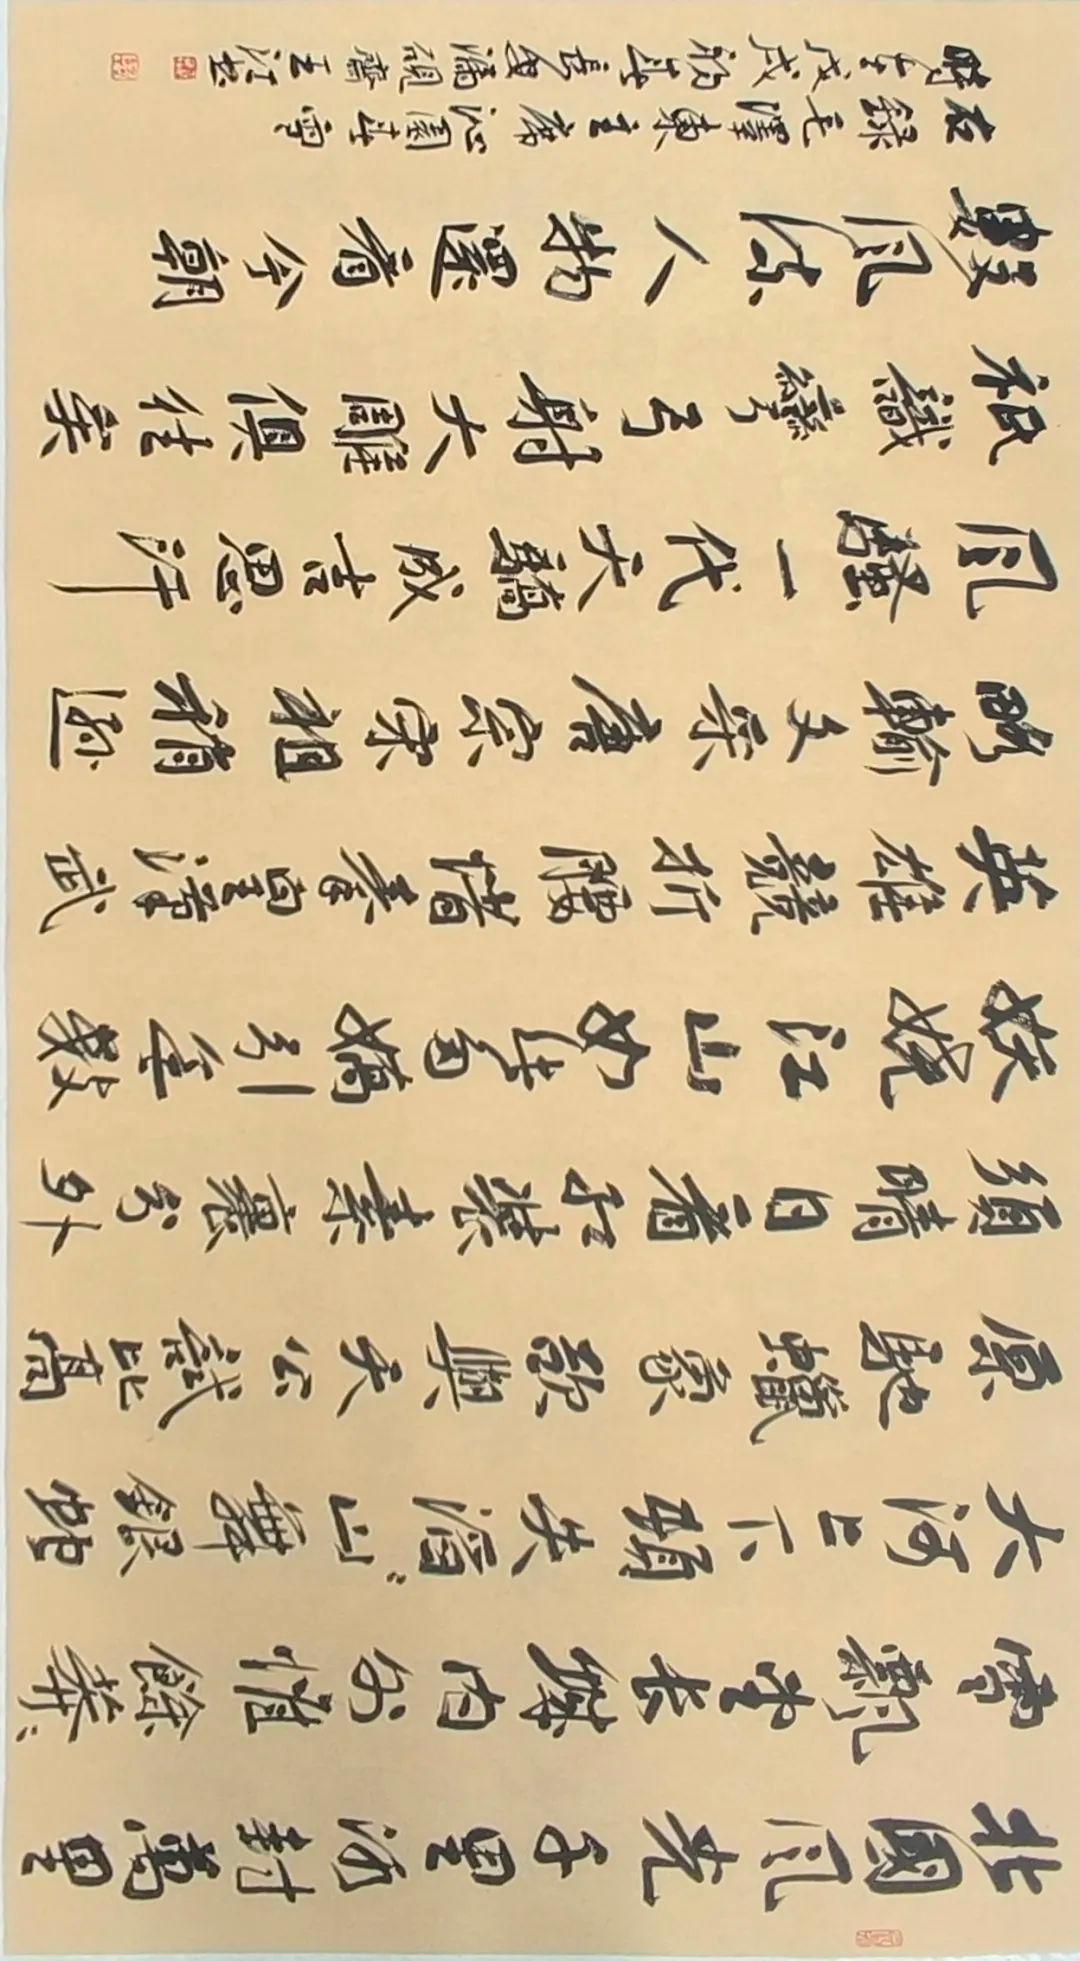 北國風光千里冰封萬里
雪飄望長城內外惟餘莽〻
大河上下頓失滔〻山舞銀蛇
原馳蠟象欲與天公試比高
須晴日看紅裝素裹分外
妖嬈江山如此多嬌引無數
英雄競折腰惜秦皇漢武
略輸文采唐宗宋祖稍遜
風騷一代天驕成吉思汗
祇識彎弓射大雕俱往矣
數風流人物還看今朝
右錄毛澤東主席沁園春雪
時在戊戌初春長安硯齋王江